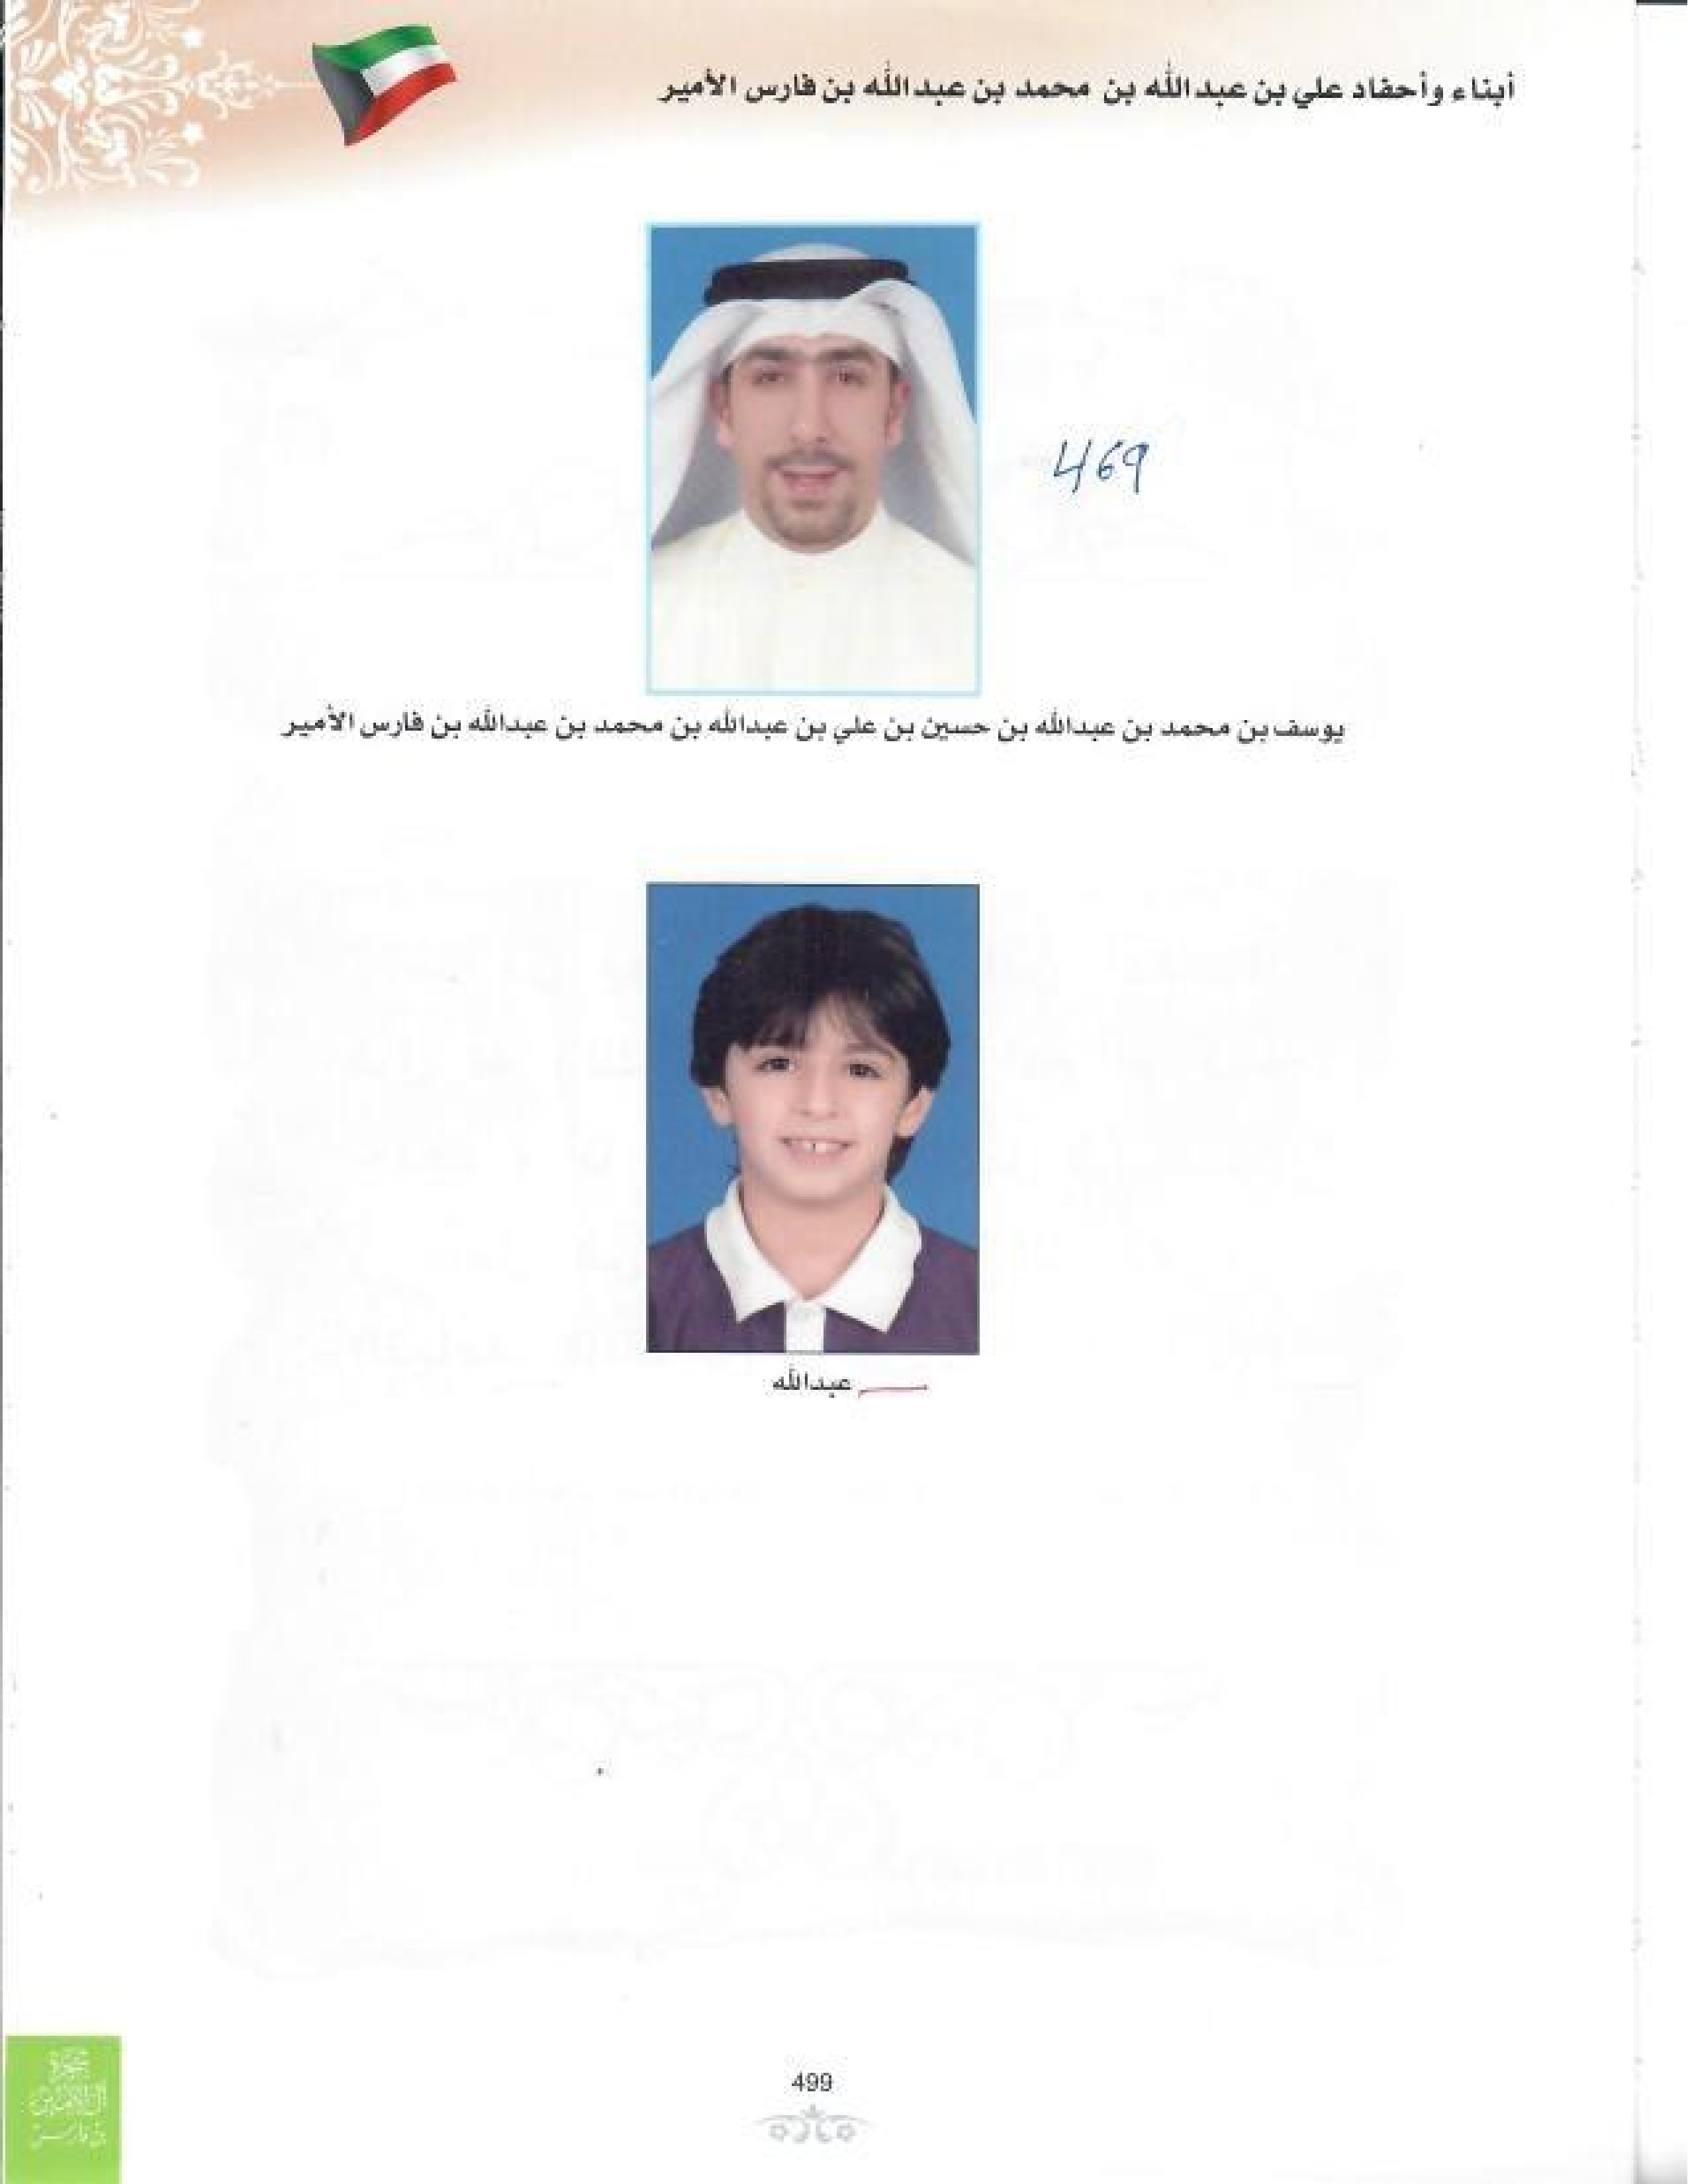 أبناء وأحفاد علي بن عبدالله بن محمد بن عبدالله بن فارس الأمير
469
يوسف بن محمد بن عبدالله بن حسين بن علي بن عبدالله بن محمد بن عبدالله بن فارس الأمير
عبدالله
499
شجرة
بن فارس